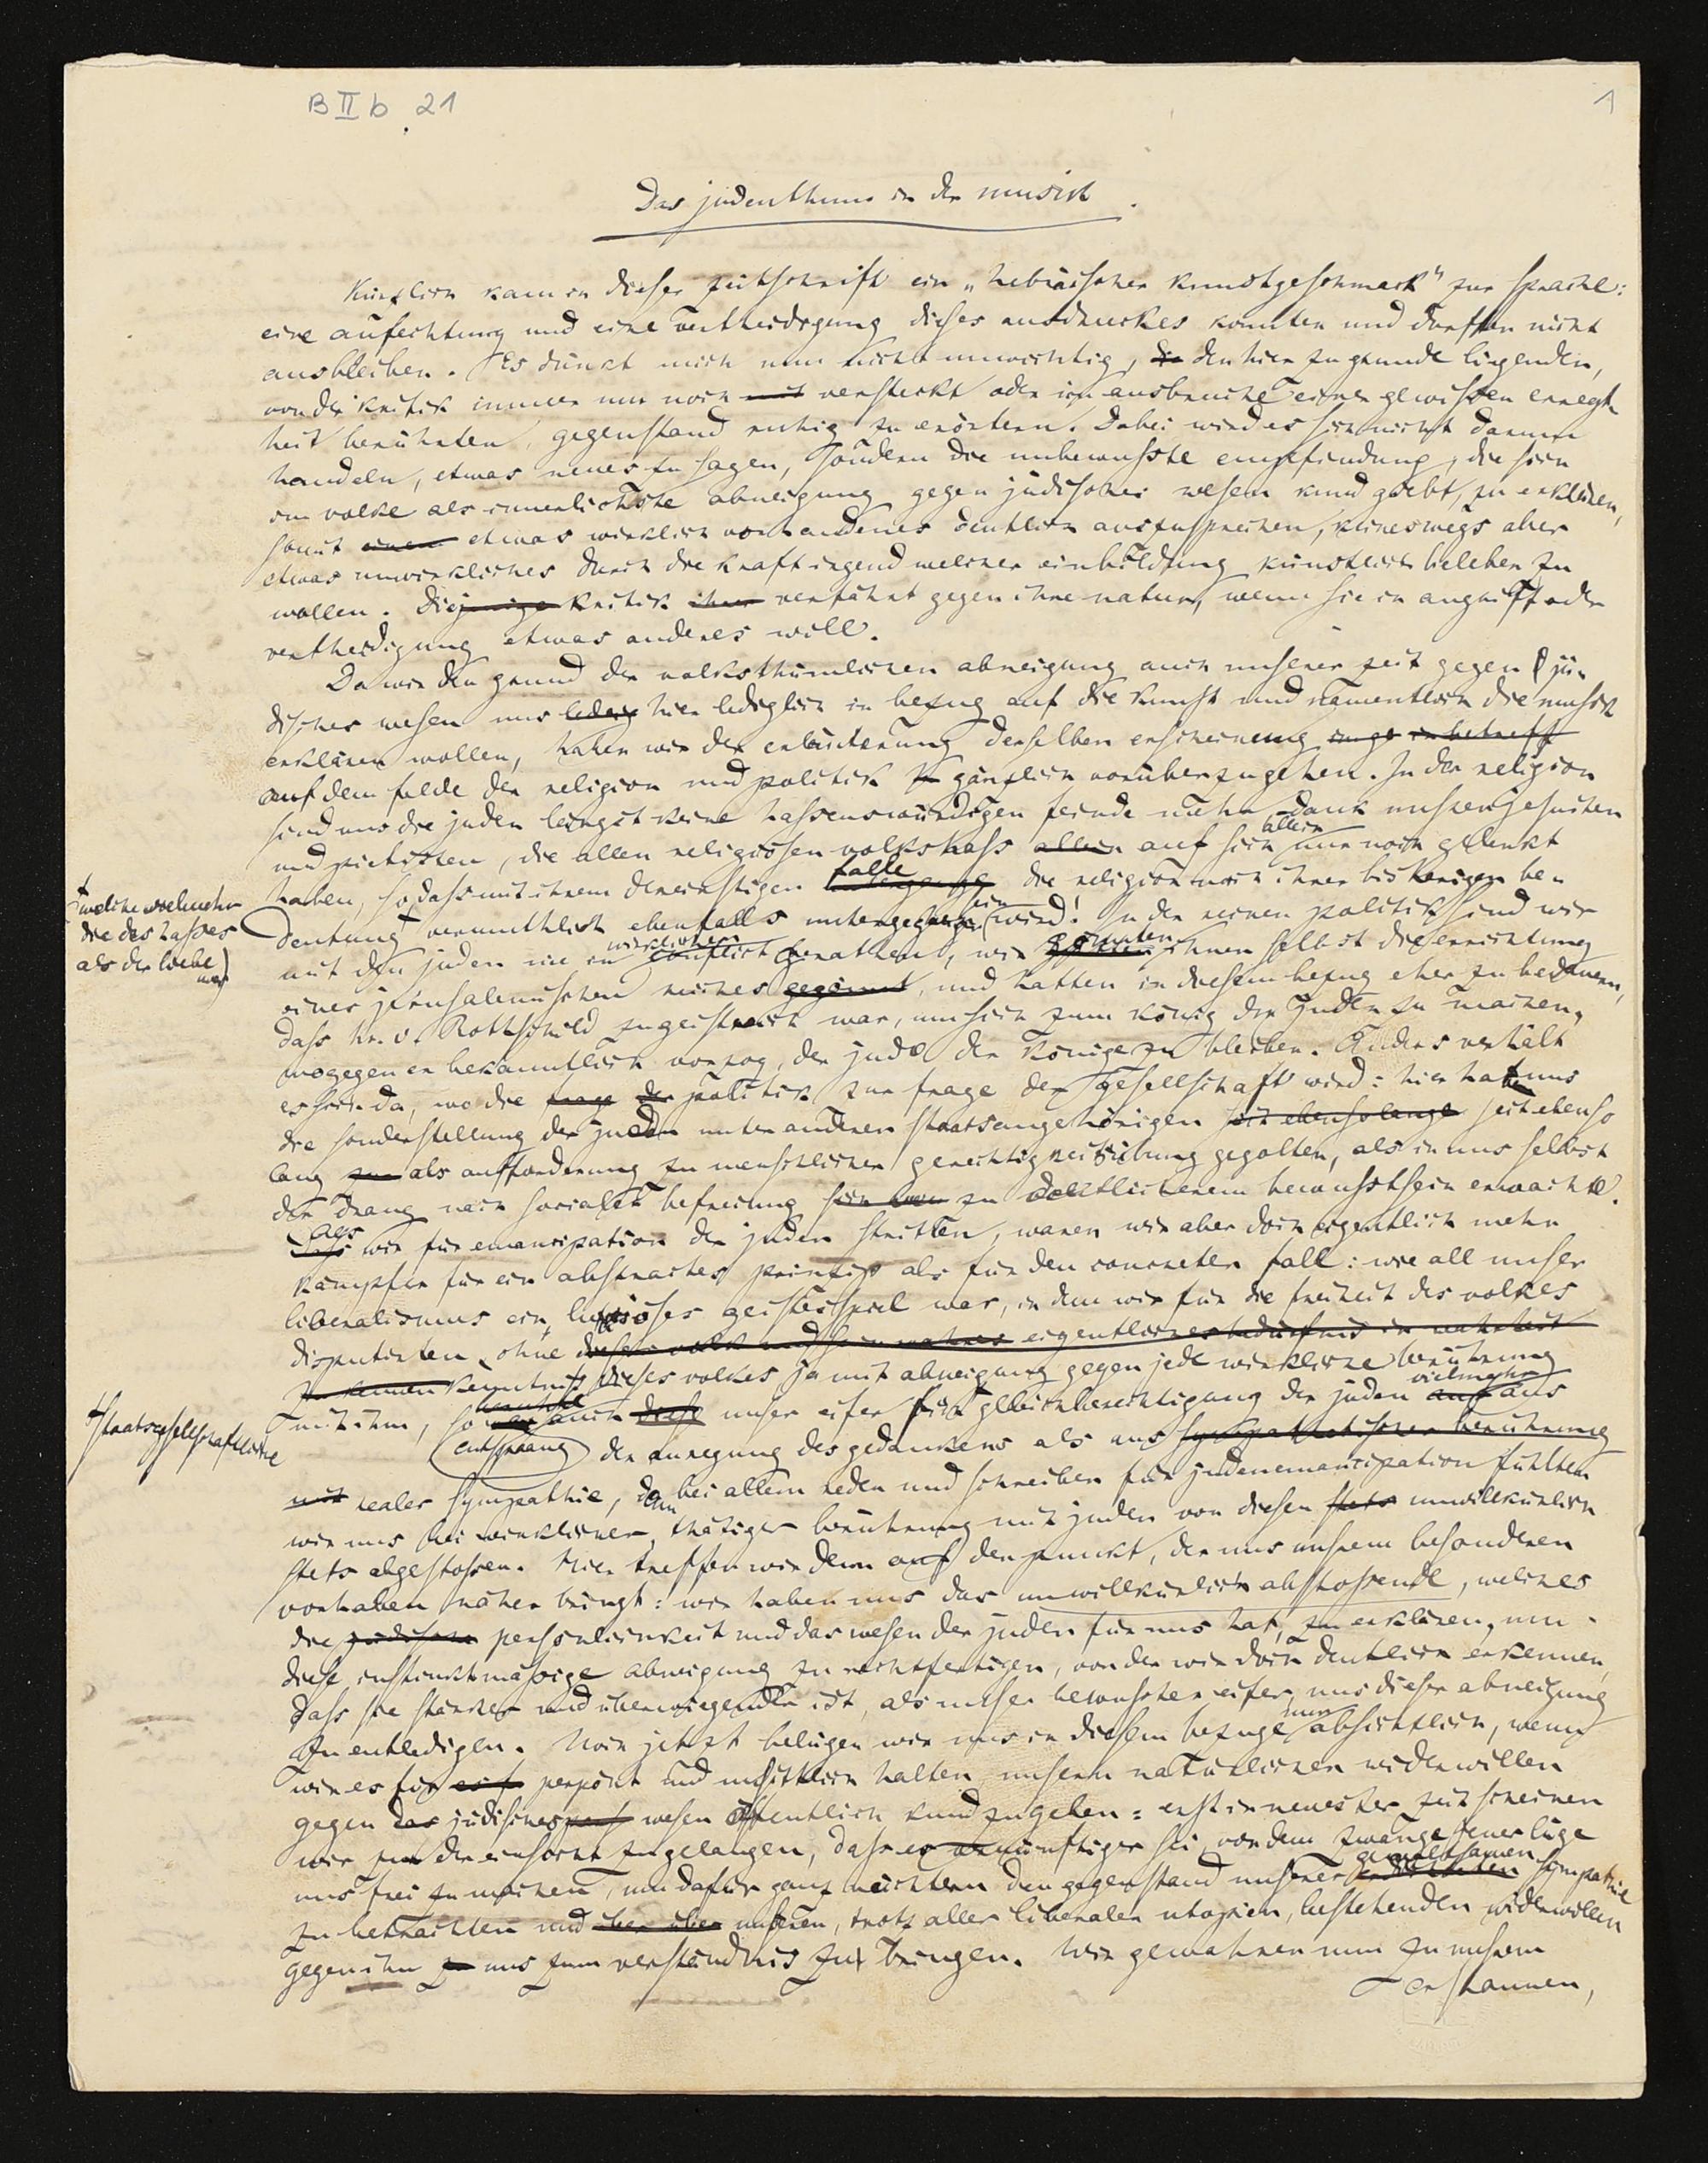 B II b 21
1
Das judenthum in der musik.
Kürzlich kam in dieser zeitschrift ein „hebräischer kunstgeschmack" zur sprache:
eine anfechtung und eine vertheidigung dieses ausdruckes konnten und durften nicht
ausbleiben. Es dünkt mich nun nicht unwichtig, die den hier zu grunde liegenden,
von der kritik immer nur noch mit versteckt oder im ausbruche einer gewissen erregt
heit berührten gegenstand ruhig zu erörtern. Dabei wird es sich nicht darum
handeln, etwas neues zu sagen, sondern die unbewusste empfindung, die sich
im volke als innerlichste abneigung gegen jüdisches wesen kund giebt, zu erklären,
somit einem etwas wirklich vorhandenes deutlich auszusprechen, keineswegs aber
etwas unwirkliches durch die kraft irgend welcher einbildung künstlich beleben zu
wollen. Diejenige kritik ihrer verfährt gegen ihre natur, wenn sie in angriff oder
vertheidigung etwas anderes will.
Da wir den grund der volksthümlichen abneigung auch unserer zeit gegen jü-
disches wesen uns ledig hier lediglich in bezug auf die kunst und namentlich die musik
erklären wollen, haben wir der erläuterung derselben erscheinung in betreff
auf dem felde der religion und politik gänzlich vorüberzugehen. In der religion
sind uns die juden längst keine hassenswürdigen feinde mehr dank unsren jesuiten
und pietisten, die allen religiösen volkshass allein auf sich allein nur noch gelenkt
haben, so dass mit ihrem dereinstigen falle die religion nach ihrer bisherigen be-
welche vielmehr
die des hasses
als der liebe
war)
deutung vermuthlich ebenfalls untergegangen sein wird! In der reinen politik sind wir
mit den juden nie in wirklichen conflict gerathen, wir gönnten ihnen selbst die errichtung
eines jerusalemischen reiches gegönnt, und hatten in diesem bezug eher zu bedauern,
dass hr. v. Rothschild zu geistreich war, um sich zum könig der juden zu machen,
wogegen er bekanntlich vorzog, der jude der könige zu bleiben. Anders verhält
es sich da, wo die frage der politik zur frage der gesellschaft wird: hier hat uns
die sonderstellung der juden unter anderen staatsangehörigen seit ebensolange seit ebenso
lang zur als aufforderung zu menschlicher gerechtigkeitsübung gegolten, als in uns selbst
der drang nach socialer befreiung zu deutlicherem bewusstsein erwachte.
als wir für emancipation der juden stritten, waren wir aber doch eigentlich mehr
kämpfer für ein abstractes prinzip als für den concreten fall: wie all unser
liberalismus ein luxuriöses geistesspiel war, in dem wir für die freiheit des volkes
disputirten, ohne dieses volk und sein wahres eigentliches bedürfnis in wahrheit
zu kennen kenntniss dieses volkes ja mit abneigung gegen jede wirkliche berührung
mit ihm, so auch diese unser eifer für gleichberechtigung der juden vielmehr auf aus
staatsgesellschaftliche
entsprang der anregung des gedankens als aus sympathetischer berührung
mit realer sympathie, denn bei allem reden und schreiben für judenemancipation fühlten
wir uns bei wirklicher, thätiger berührung mit juden von diesen stets unwillkürlich
stets abgestossen. Hier treffen wir denn auf den punkt, der uns unsrem besonderen
vorhaben näher bringt: wir haben uns das unwillkürlich abstossende, welches
die jüdische persönlichkeit und das wesen der juden für uns hat, zu erklären, um
diese instinktmässige abneigung zu rechtfertigen, von der wir doch deutlich erkennen,
dass sie stärker und überwiegender ist, als unser bewusster eifer, uns dieser abneigung
zu entledigen. Noch jetzt belügen wir uns in diesem bezuge nur absichtlich, wenn
wir es für perpönt und unsittlich halten, unsern natürlichen widerwillen
gegen das jüdisches wesen öffentlich kund zu geben: erst in neuester zeit scheinen
wir zu der einsicht zu gelangen, dass es vernünftiger sei, von dem zwange jener lüge
uns frei zu machen, um dafür ganz nüchtern den gegenstand unserer gewaltsamen sympathie
zu betrachten und unseren, trotz aller liberalen utopien, bestehenden widerwillen
gegen ihn zu uns zum verständnis zu bringen. Wir gewahren nun zu unsrem
erstaunen,